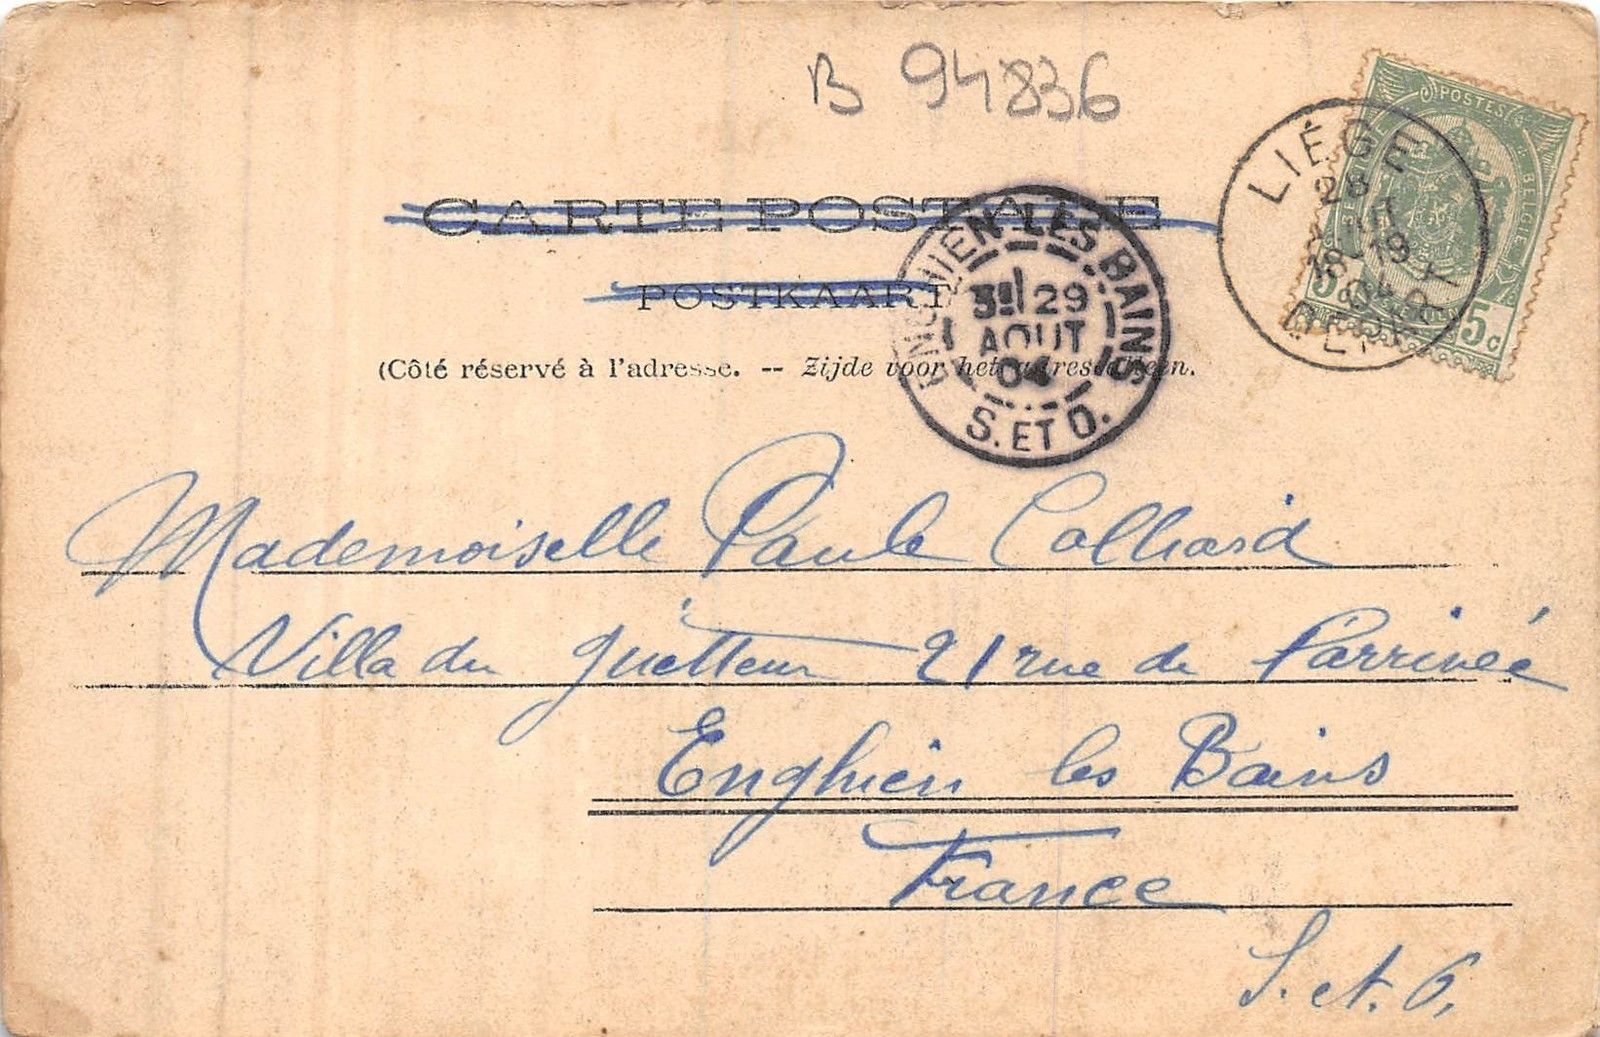 B 94836
CARTE POSTALE
POSTKAART
(Côté réservé à l'adresse. -- Zijde voor het adres alleen.
POSTES
BELGIE
5c
LIÉGE
28
18-19
04
DÉPART
ENGHIEN LES BAINS
29
AOUT
04
S. ET O.
Mademoiselle Paule Colliard
Villa du guetteur 21 rue de
Enghien les Bains
France
S. et O.